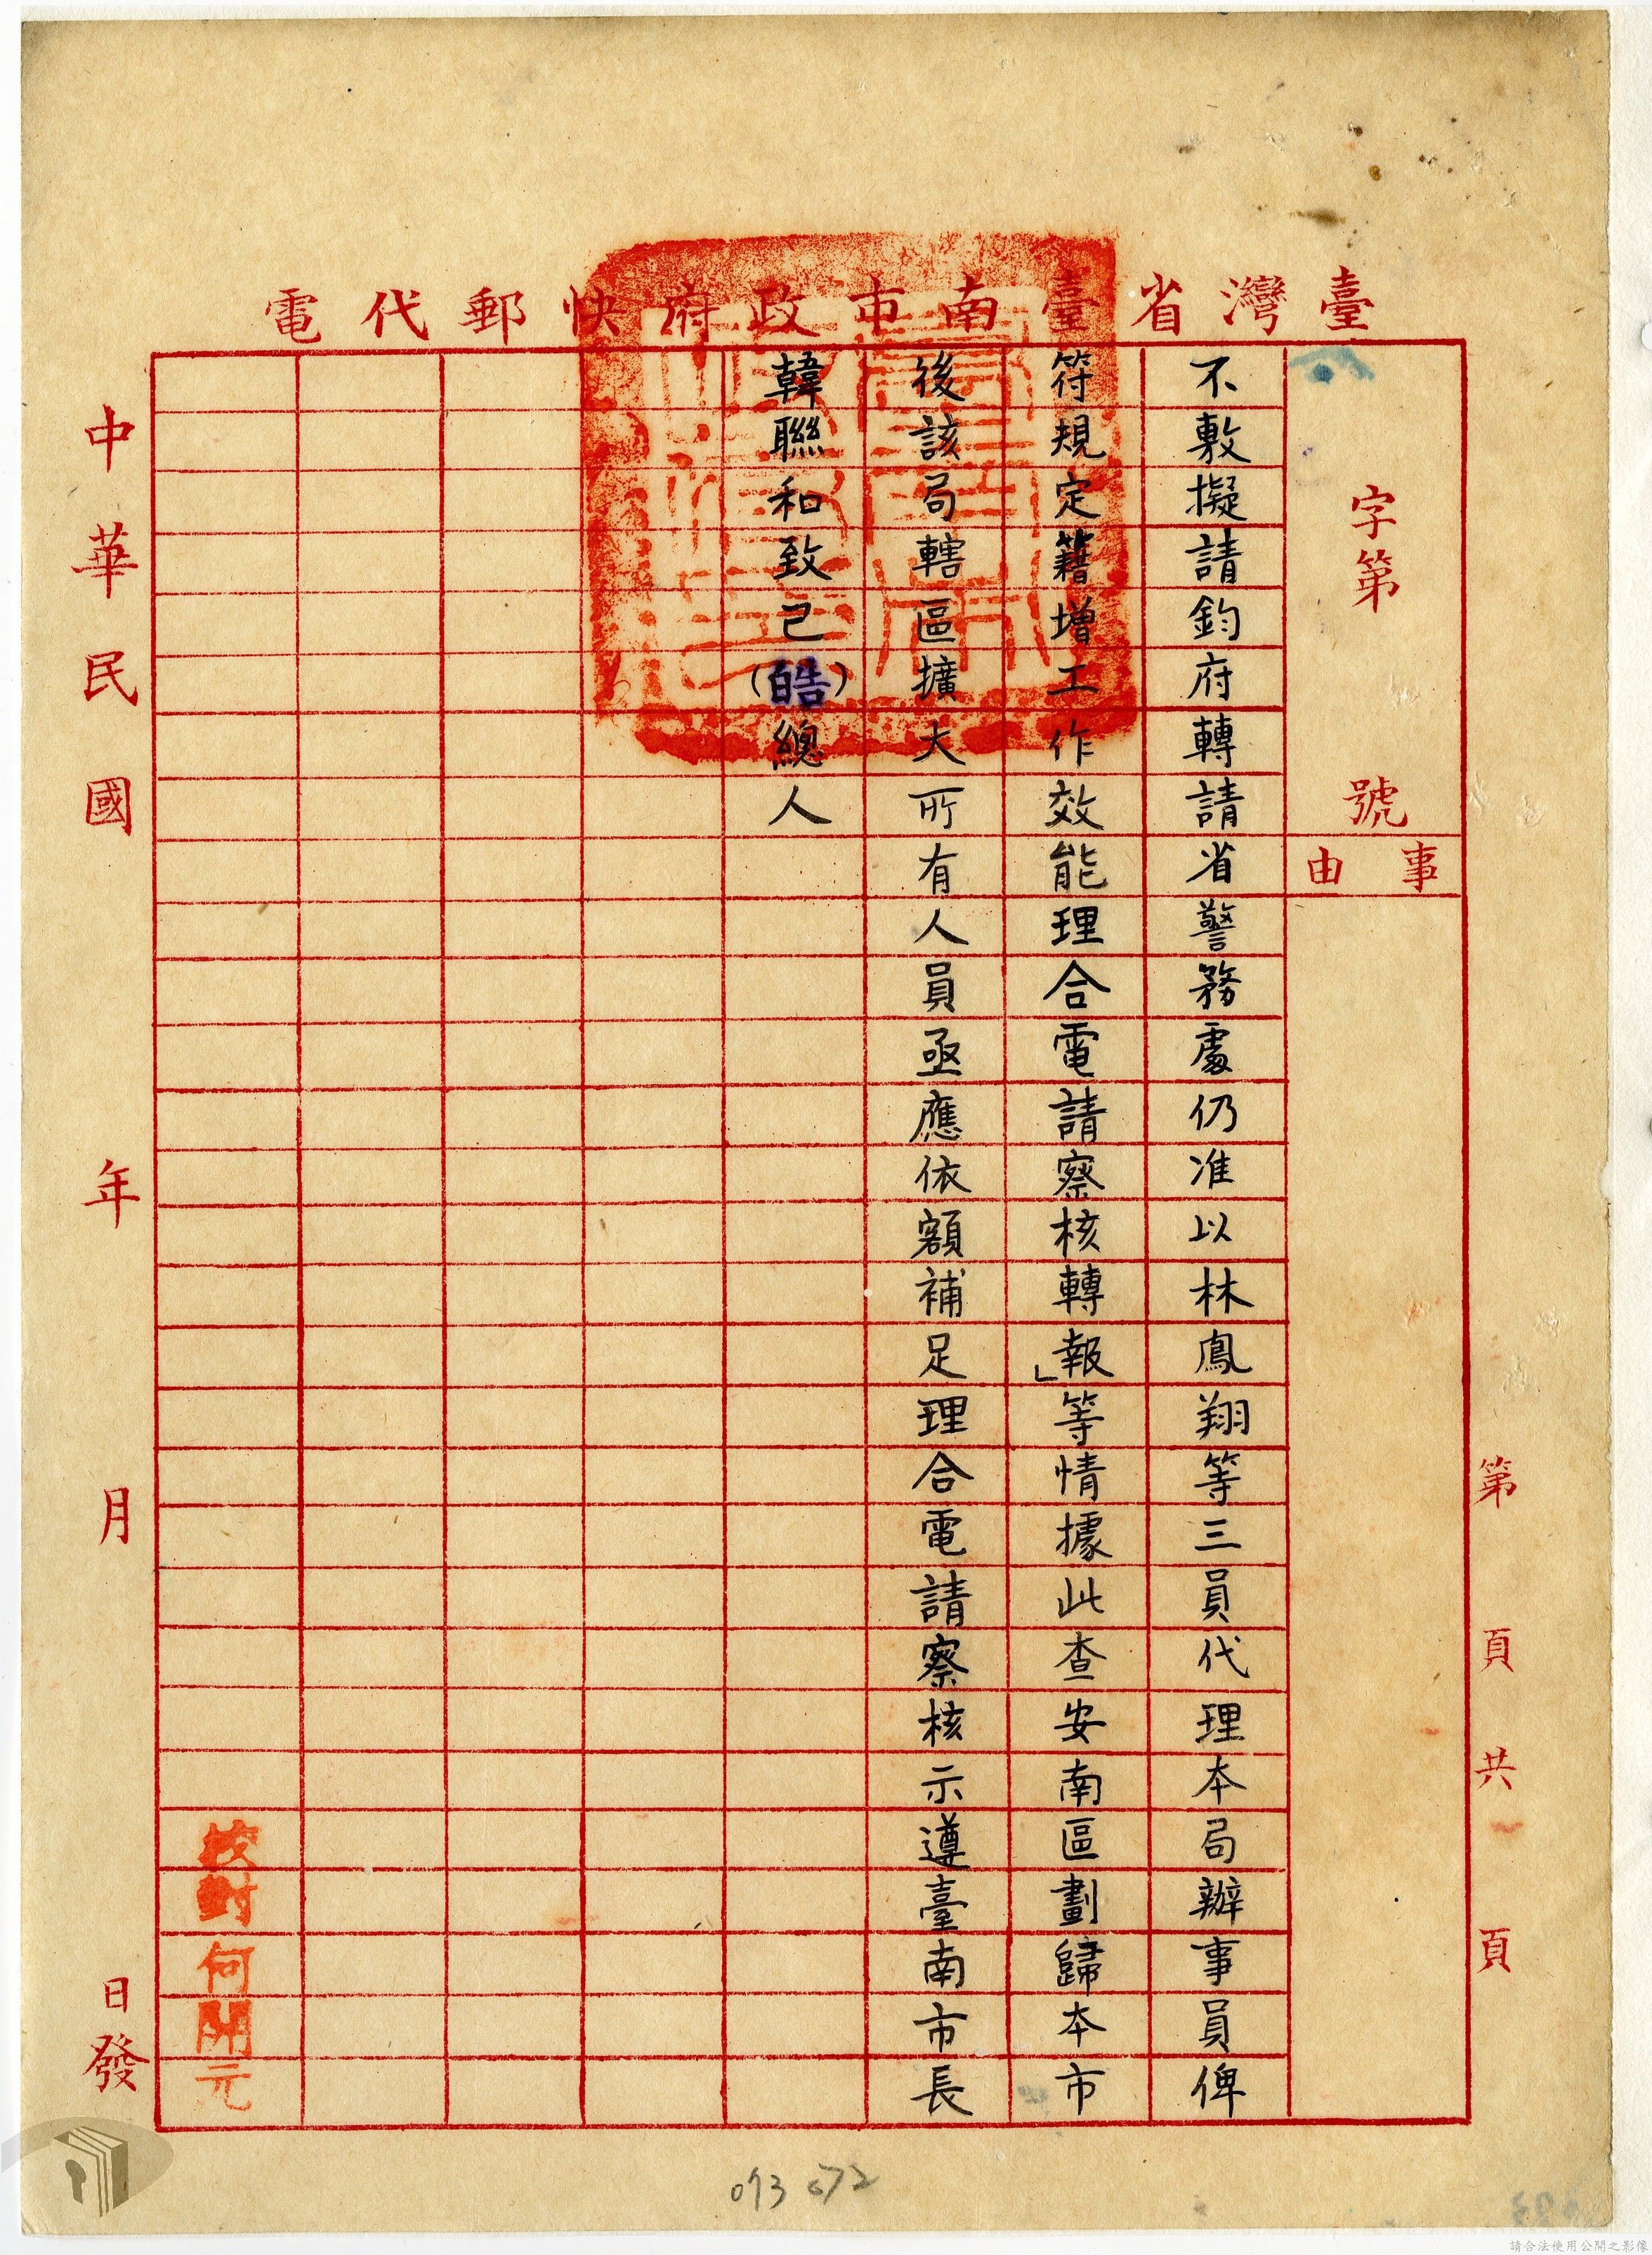 臺灣省臺南市政府快郵代電
字第 號
事由
不敷擬請鈞府轉請省警務處仍准以林鳳翔等三員代理本局辦事員俾
符規定籍增工作效能理合電請察核轉報」等情據此查安南區劃歸本市
後該局轄區擴大所有人員亟應依額補足理合電請察核示遵臺南市長
韓聯和致己(皓)總人
校對何開元
中華民國 年 月 日發
第 頁共 頁
請合法使用公開之影像